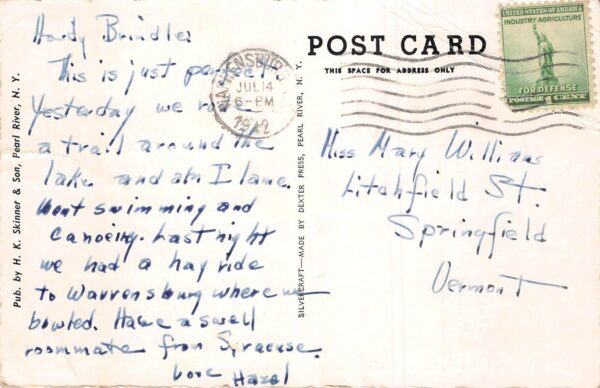 Howdy Brindle:
This is just perfect.
Yesterday we rode
a trail around the
lake and am I lame.
Went swimming and
canoeing. Last night
we had a hay ride
to Warrensburg where we
bowled. Have a swell
roommate from Syracuse.
Love Hazel
POST CARD
THIS SPACE FOR ADDRESS ONLY
WARRENSBURG
JUL 14
6-PM
1942
UNITED STATES OF AMERICA
INDUSTRY AGRICULTURE
FOR DEFENSE
POSTAGE 1 CENT
Miss Mary Williams
Litchfield St.
Springfield
Vermont
Pub. by H. K. Skinner & Son, Pearl River, N. Y.
SILVERCRAFT—MADE BY DEXTER PRESS, PEARL RIVER, N. Y.